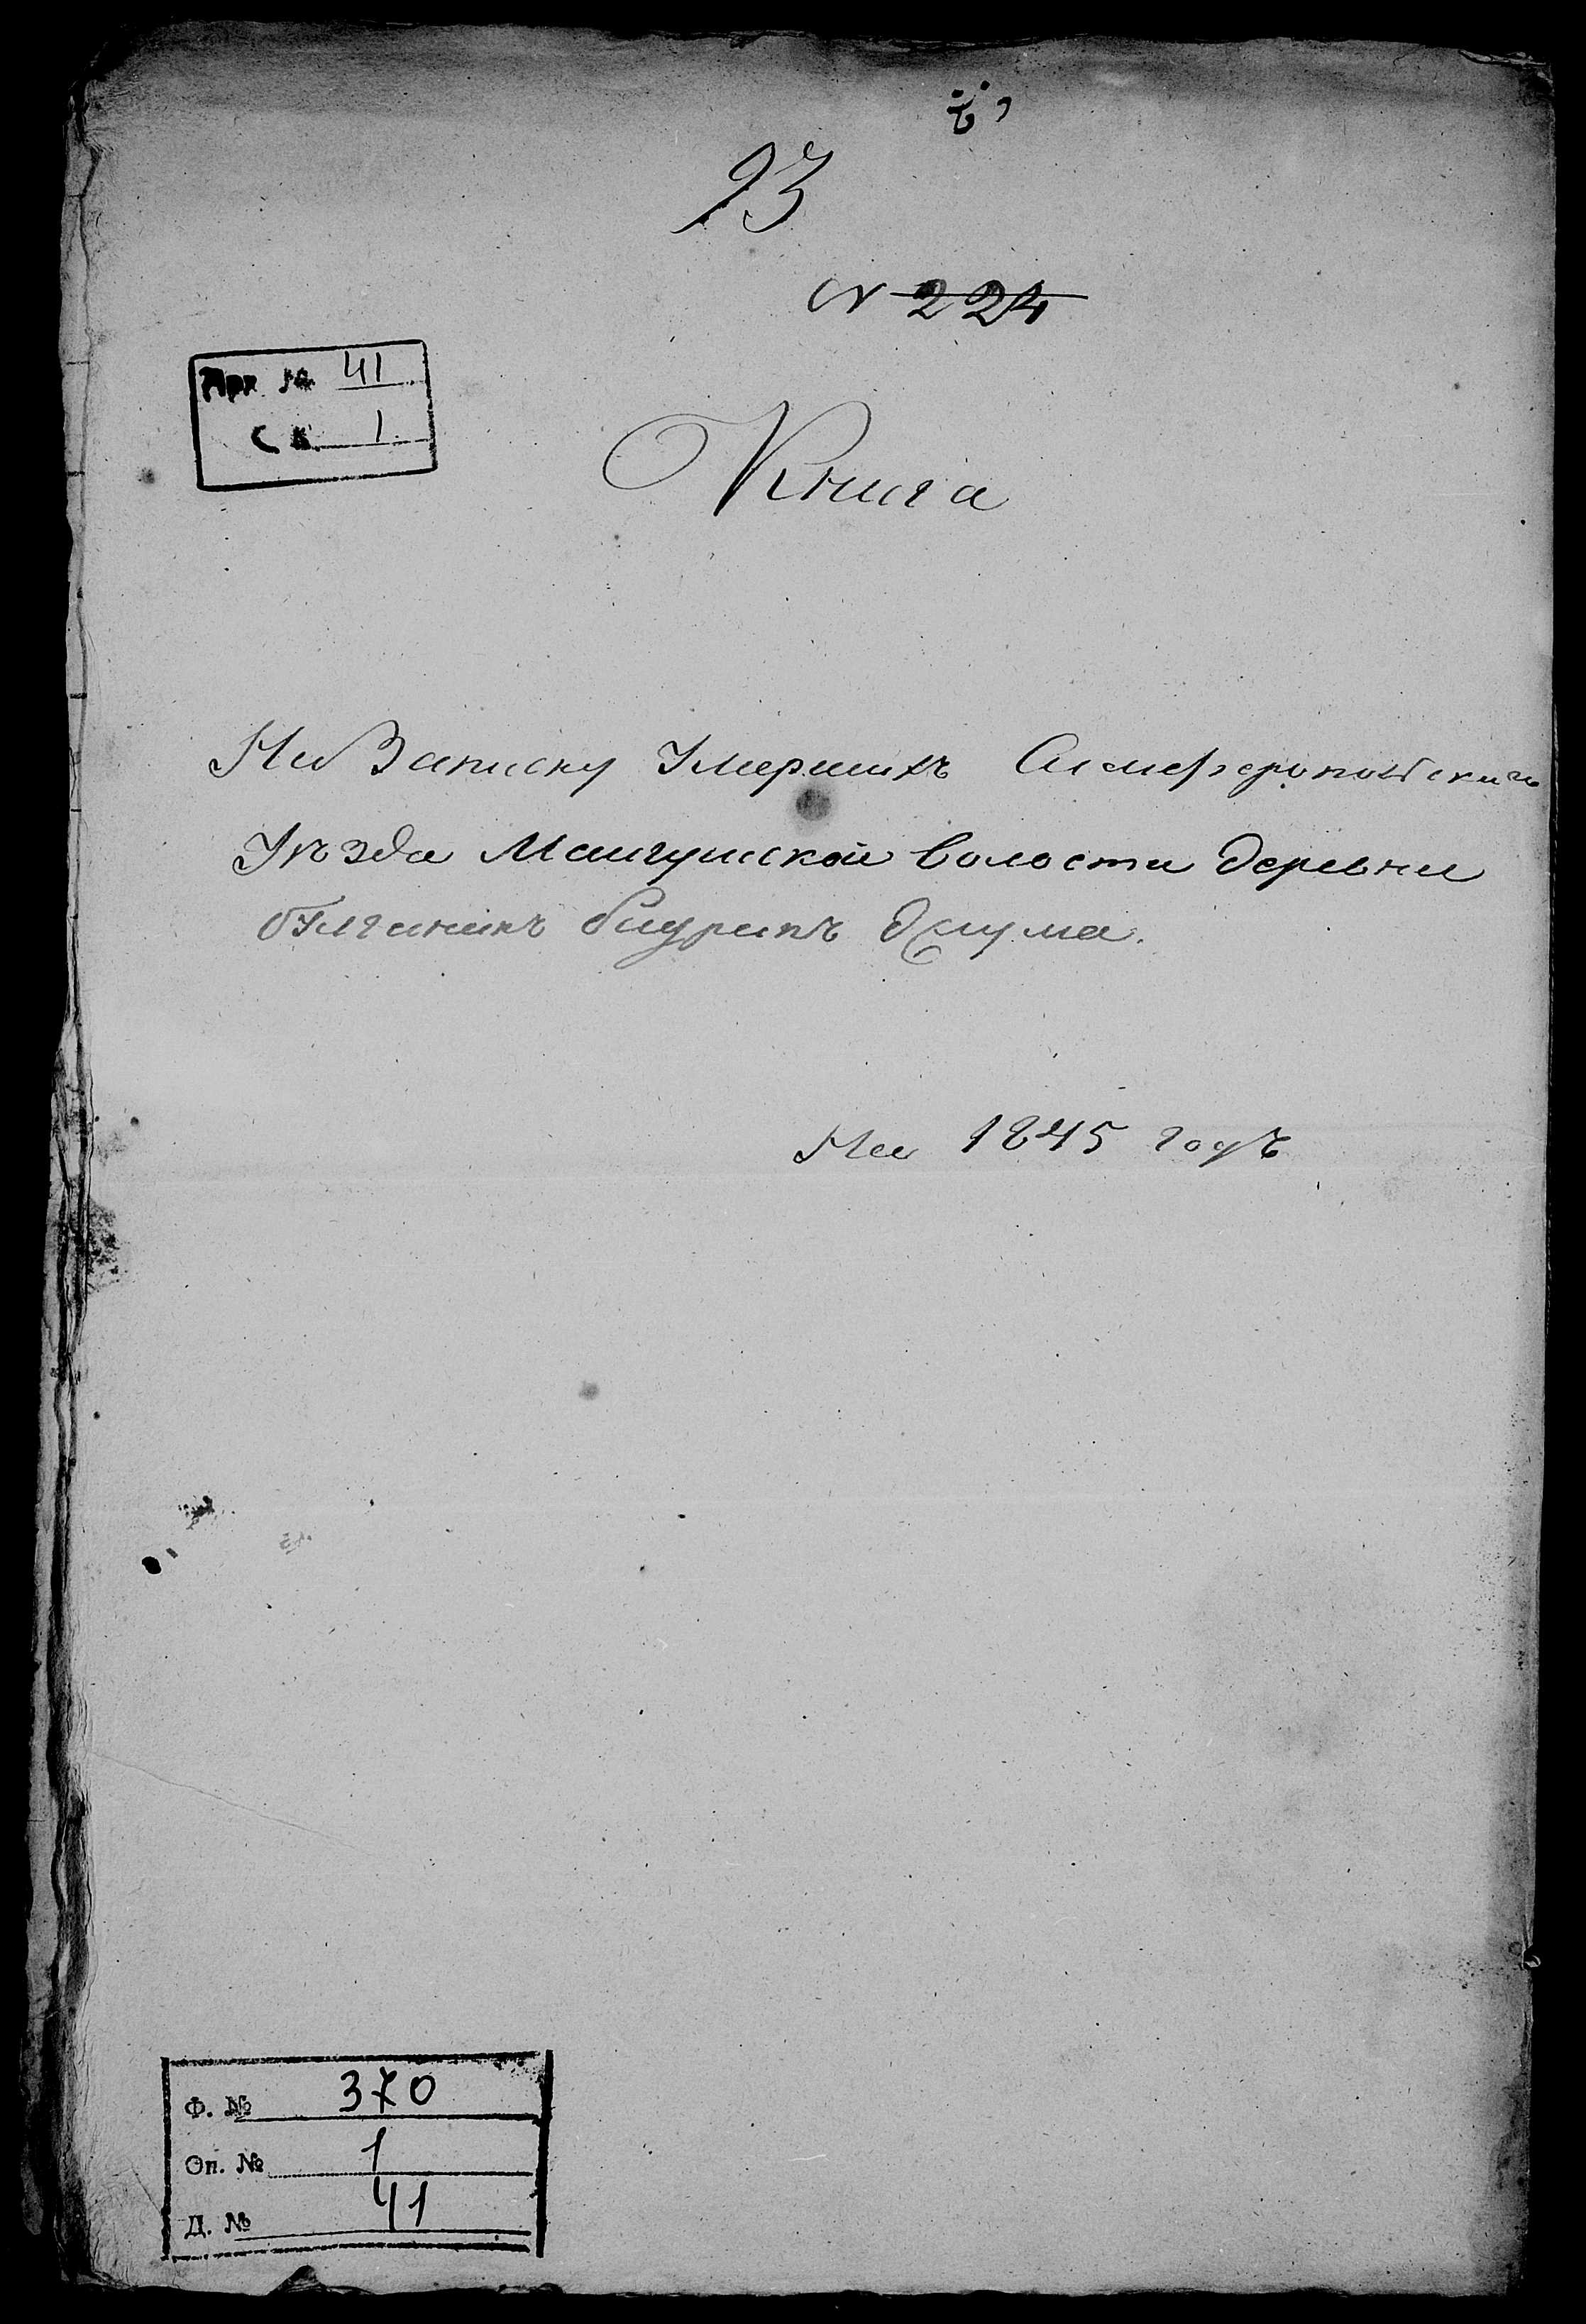 93
N 224
Арх № 41
Св. 1
Книга
На Записку Умершихъ Симферопольскаго
Уѣзда Мангушской волости деревни
джума.
На 1845 годъ
Ф. № 370
Оп. № 1
Д. № 41